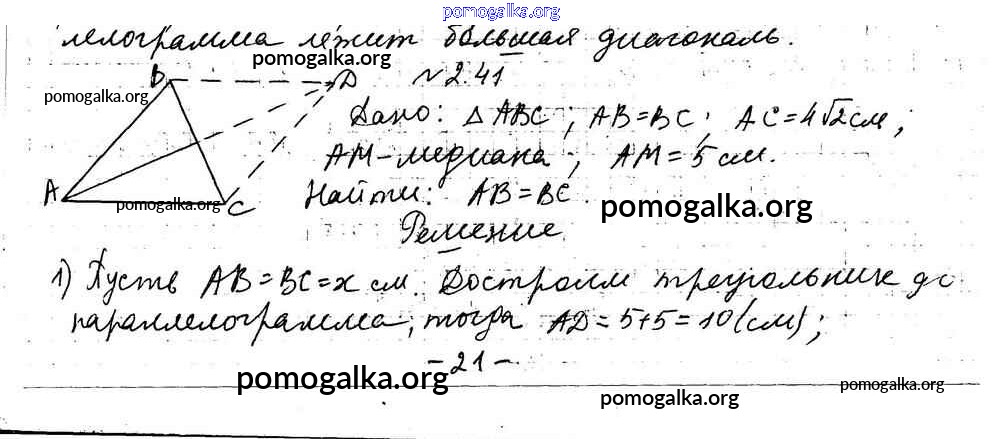 pomogalka.org
лелограмма лежит большая диагональ.
pomogalka.org
B D №2.41
pomogalka.org
Дано: △ABC; AB=BC; AC=4√2 см;
AM-медиана; AM=5 см.
A C Найти: AB=BC.
pomogalka.org
pomogalka.org
Решение.
1) Пусть AB=BC=x см. Достроим треугольник до
параллелограмма, тогда AD=5+5=10(см);
-21-
pomogalka.org
pomogalka.org
pomogalka.org